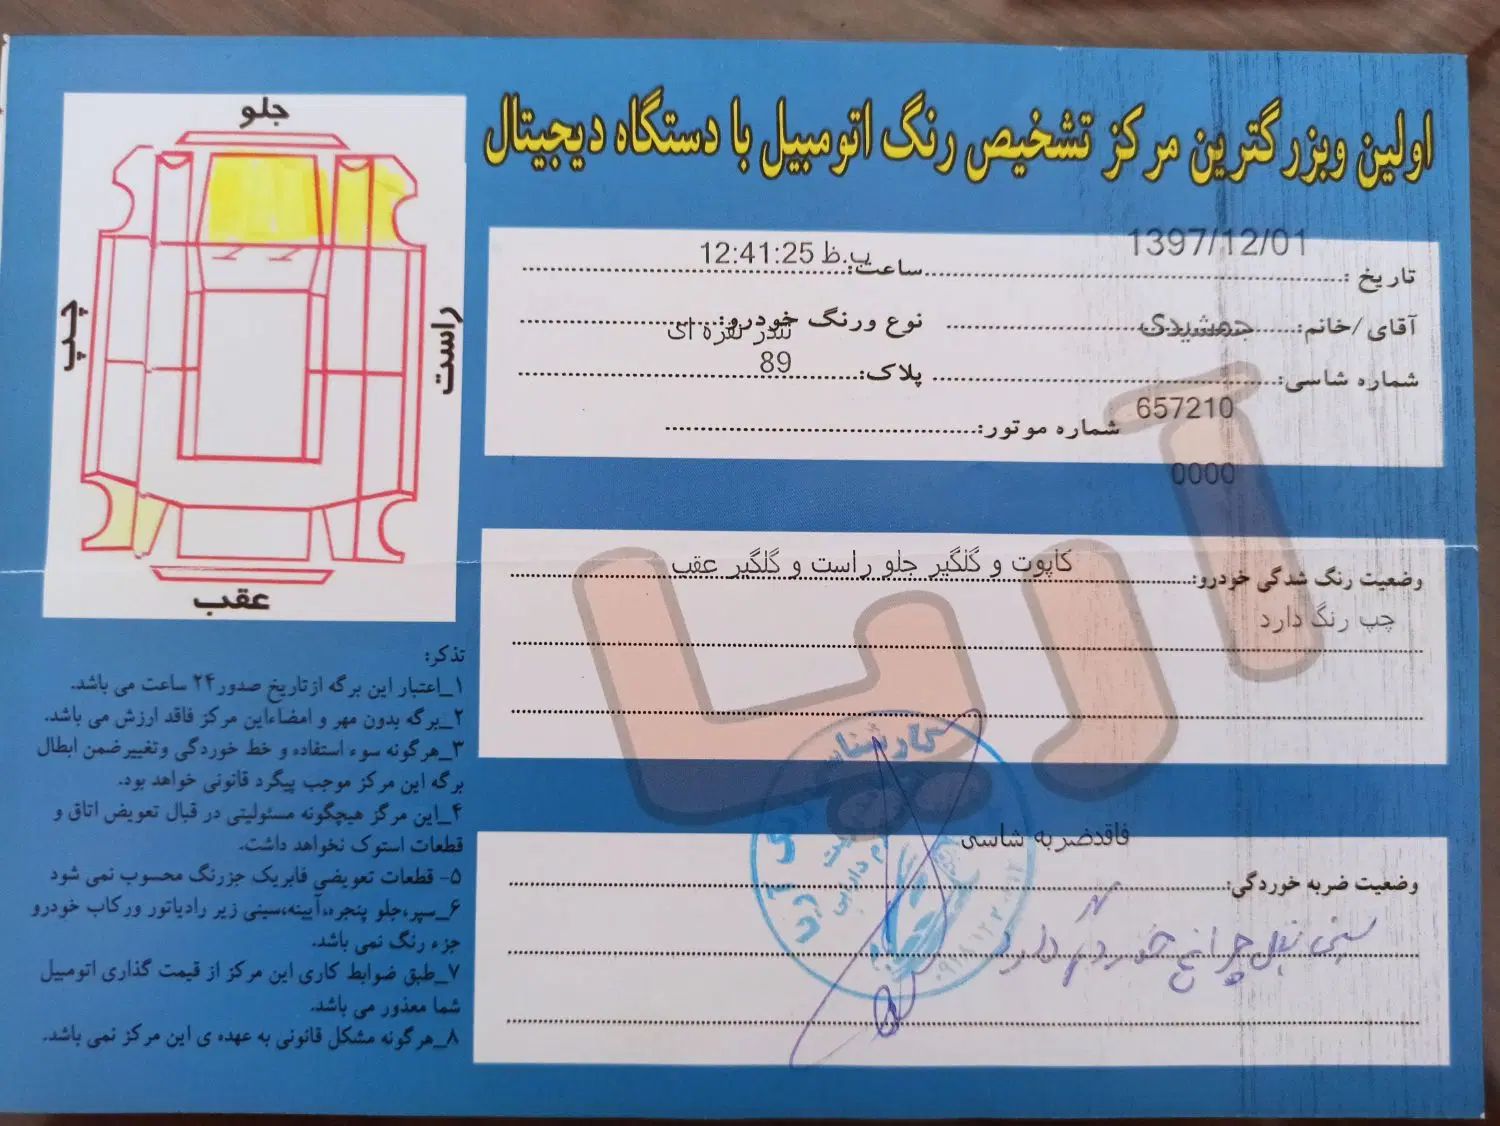 اولین وبزرگترین مرکز تشخیص رنگ اتومبیل با دستگاه دیجیتال
جلو
چپ
راست
عقب
تاریخ : 1397/12/01 ساعت: 12:41:25 ب.ظ
آقای/خانم: جمشیدی نوع ورنگ خودرو: تندر نقره ای
شماره شاسی: 657210 پلاک: 89
شماره موتور: 0000
وضعیت رنگ شدگی خودرو: کاپوت و گلگیر جلو راست و گلگیر عقب
چپ رنگ دارد
آریا
وضعیت ضربه خوردگی: فاقدضربه شاسی
سینی بغل چراغ خوردگی دارد
کارشناسی
تذکر:
۱_اعتبار این برگه ازتاریخ صدور۲۴ ساعت می باشد.
۲_برگه بدون مهر و امضاءاین مرکز فاقد ارزش می باشد.
۳_هرگونه سوء استفاده و خط خوردگی وتغییرضمن ابطال
برگه این مرکز موجب پیگرد قانونی خواهد بود.
۴_این مرکز هیچگونه مسئولیتی در قبال تعویض اتاق و
قطعات استوک نخواهد داشت.
۵- قطعات تعویضی فابریک جزرنگ محسوب نمی شود
۶_سپر،جلو پنجره،آیینه،سینی زیر رادیاتور ورکاب خودرو
جزء رنگ نمی باشد.
۷_طبق ضوابط کاری این مرکز از قیمت گذاری اتومبیل
شما معذور می باشد.
۸_هرگونه مشکل قانونی به عهده ی این مرکز نمی باشد.